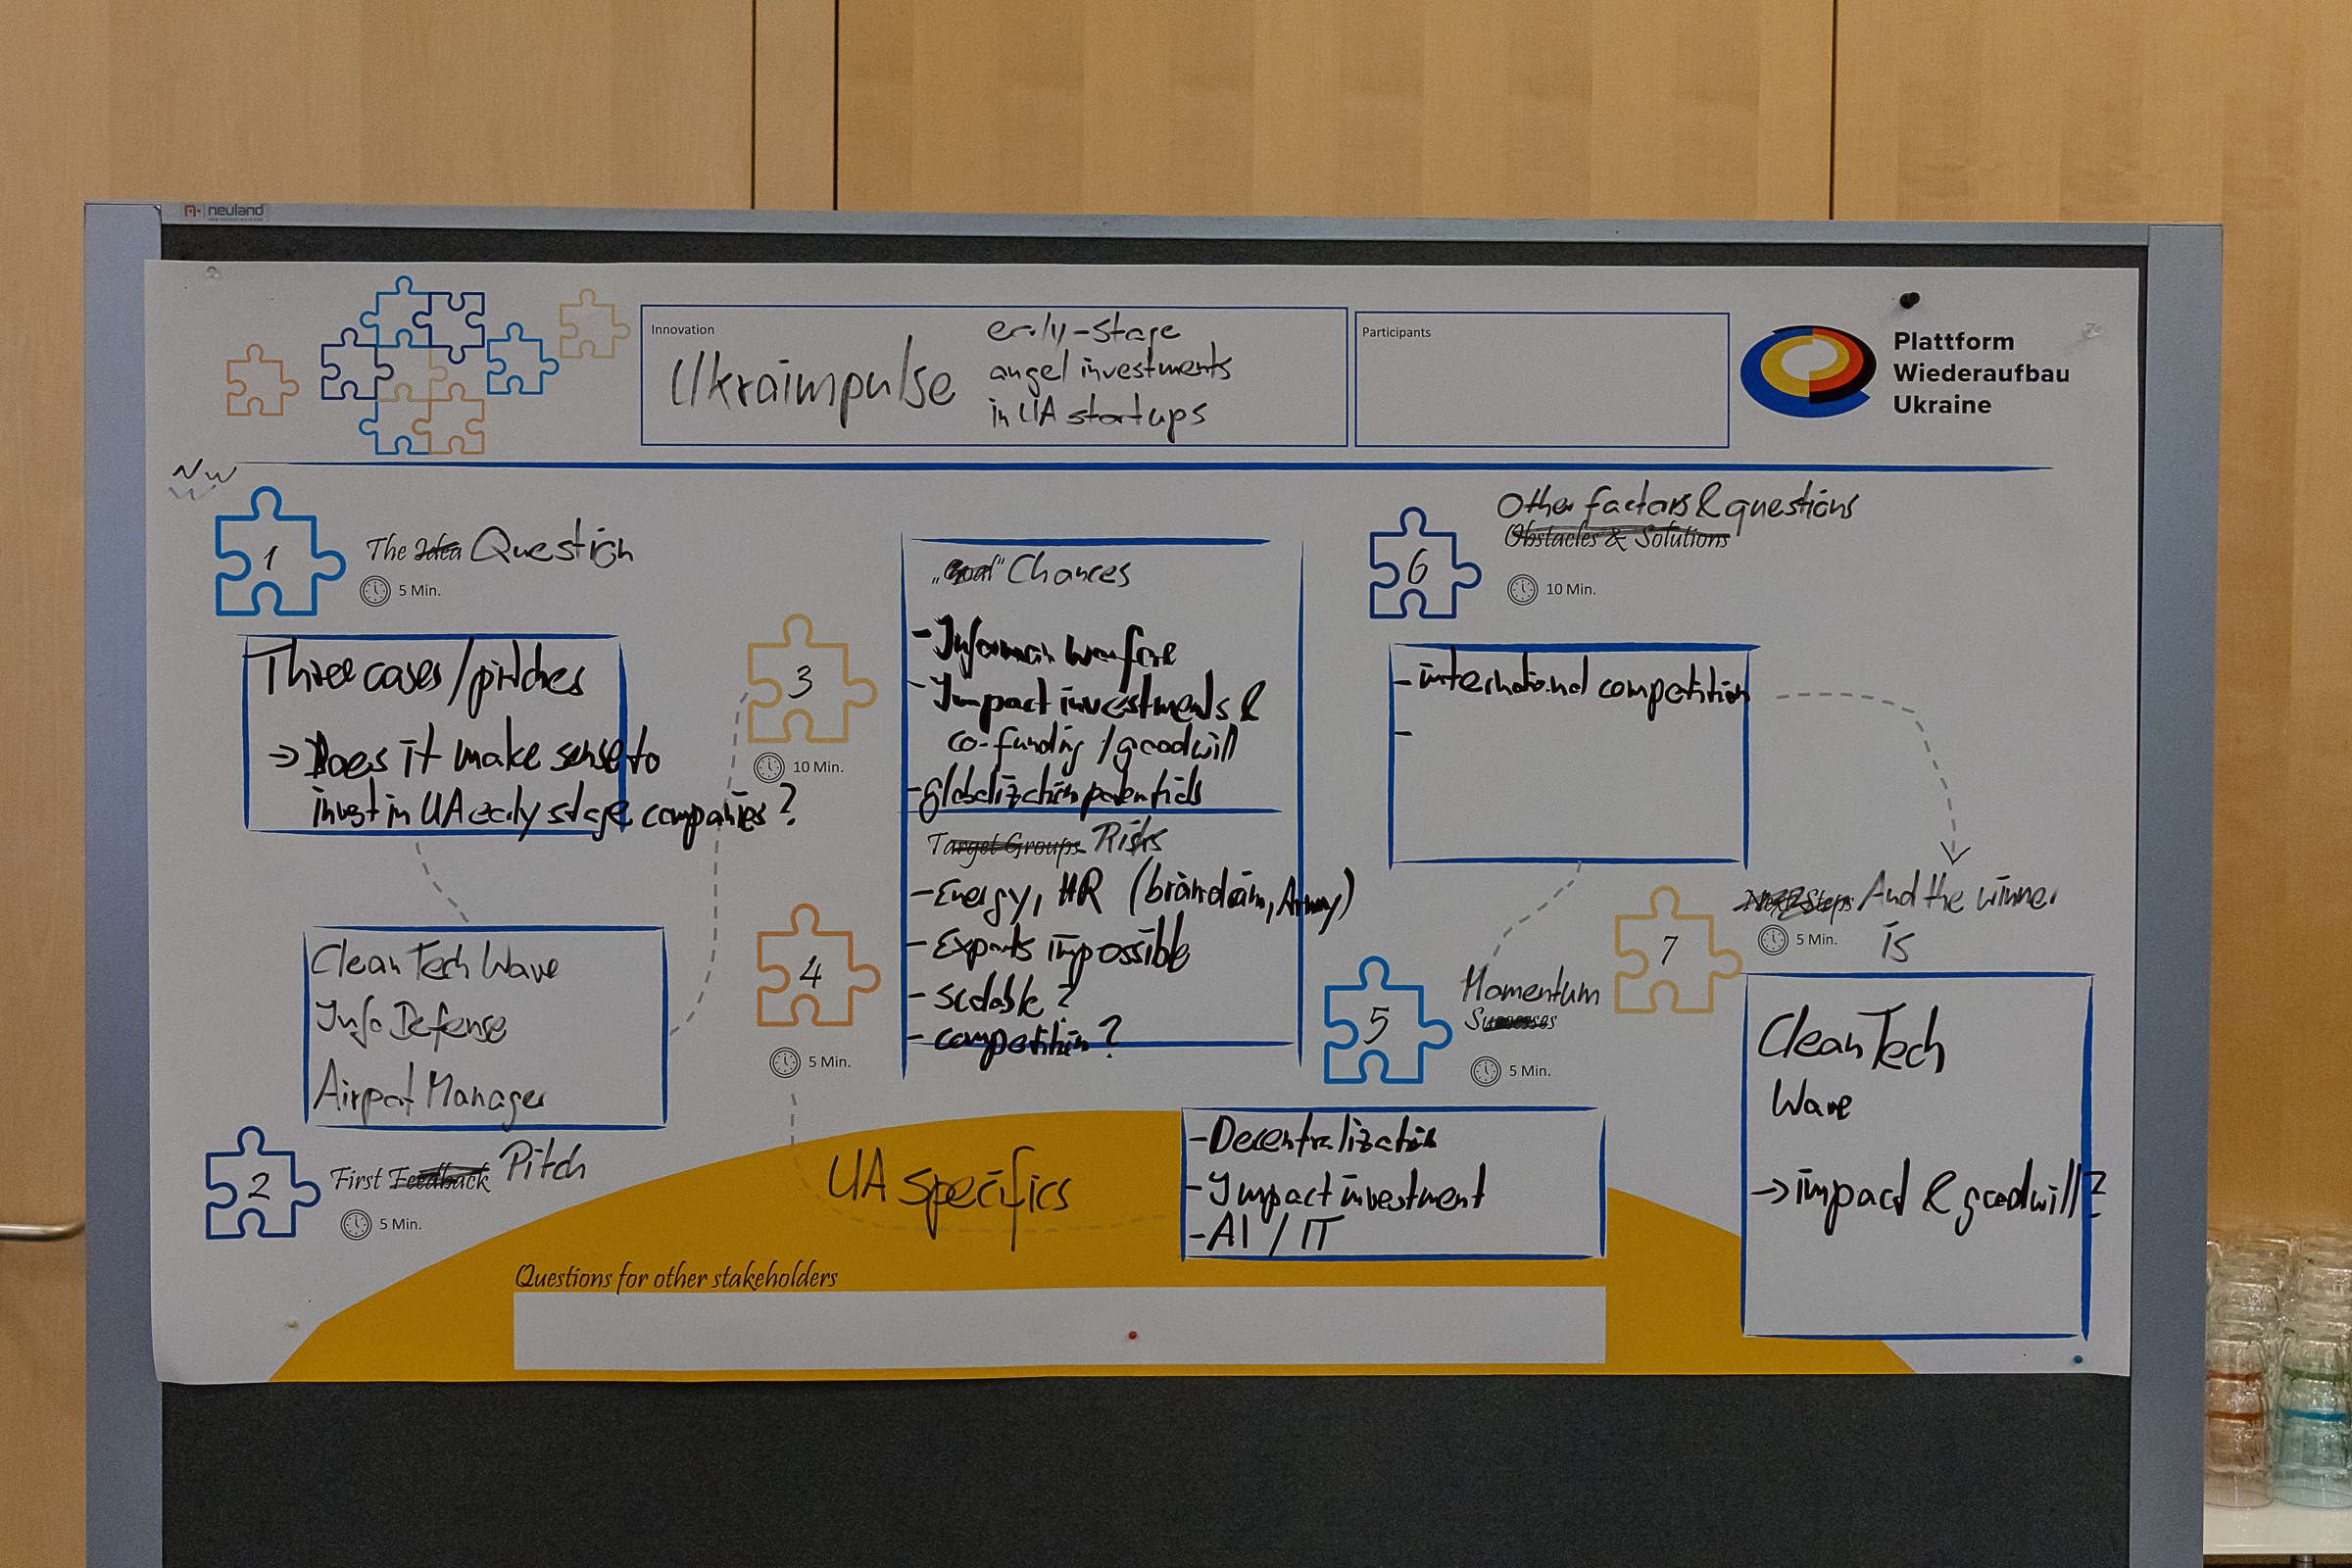 neuland
Innovation
Ukraimpulse
early-stage
angel investments
in UA startups
Participants
Plattform
Wiederaufbau
Ukraine
NW
1
The Idea Question
5 Min.
Three cases/pitches
→ Does it make sense to
invest in UA early stage companies?
Clean Tech Wave
Info Defense
Airport Manager
2
First Feedback Pitch
5 Min.
3
10 Min.
"Goal" Chances
- Informain warfare
- Impact investments &
co-funding / goodwill
- globalization potentials
4
5 Min.
Target Groups Risks
- Energy, HR (braindrain, Army)
- Exports impossible
- scalable?
- competition?
UA specifics
5
Momentum
Successes
5 Min.
- Decentralization
- Impact investment
- AI / IT
6
Other factors & questions
Obstacles & Solutions
10 Min.
- international competition
-
7
Next Steps And the winner
is
5 Min.
Clean Tech
Wave
→ impact & goodwill?
Questions for other stakeholders